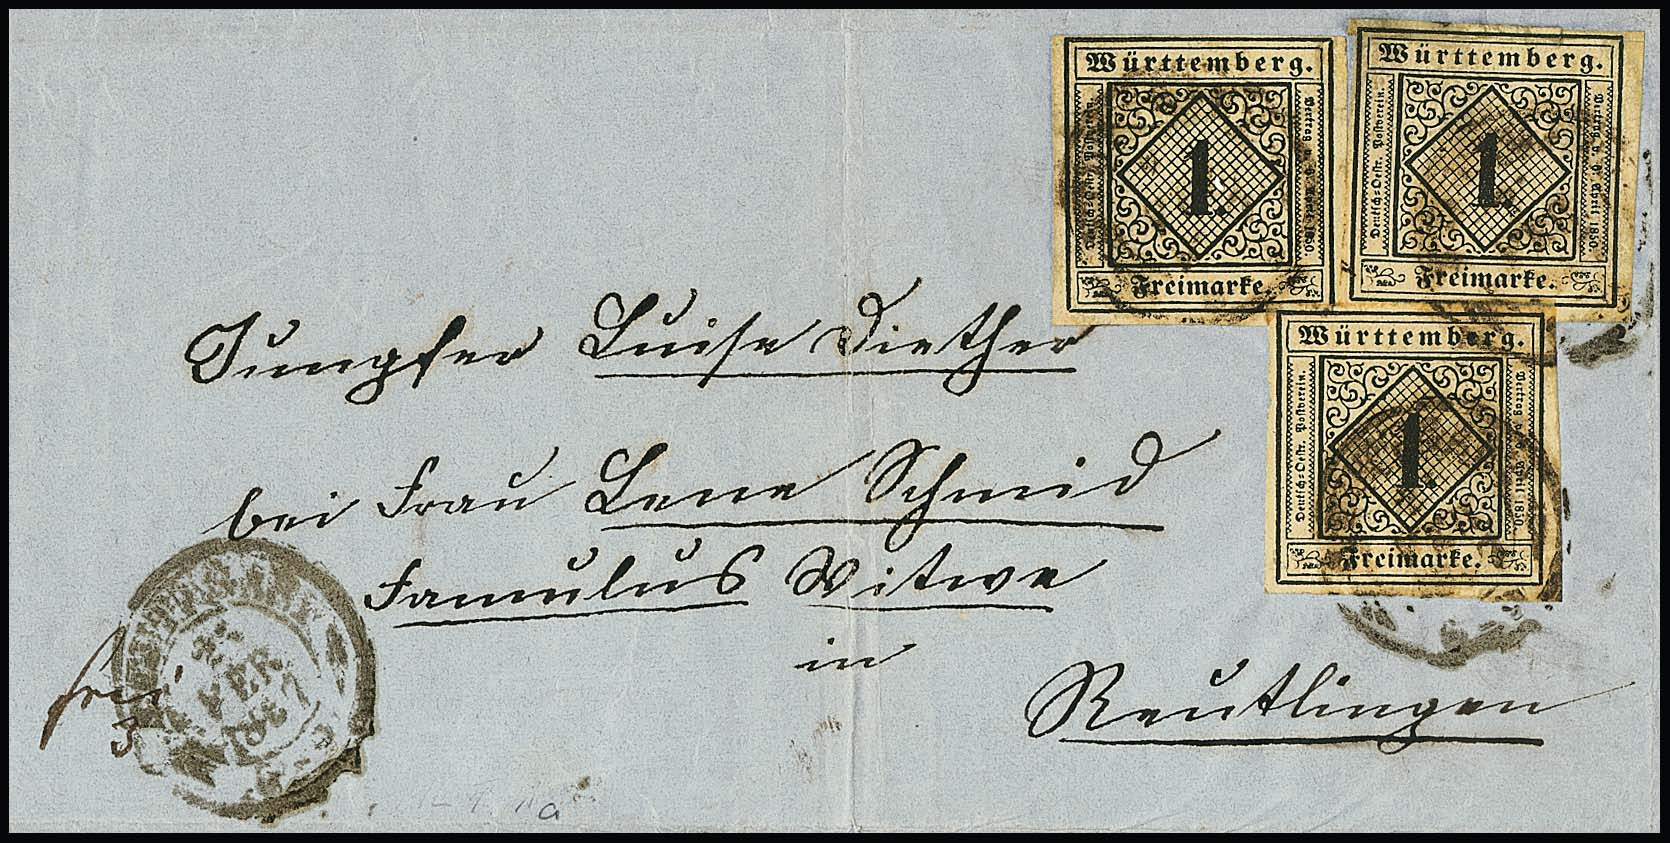 Württemberg.
Deutsch-Oestr. Postverein.
1
Vertrag v. 6. April 1850.
Freimarke.
Württemberg.
Deutsch-Oestr. Postverein.
1.
Vertrag v. 6. April 1850.
Freimarke.
Württemberg.
Deutsch-Oestr. Postverein.
1.
Vertrag v. 6. April 1850.
Freimarke.
Jungfer Luise Diether
bei Frau Lene Schmid
Famulus Witwe
in
Reutlingen
frei
3